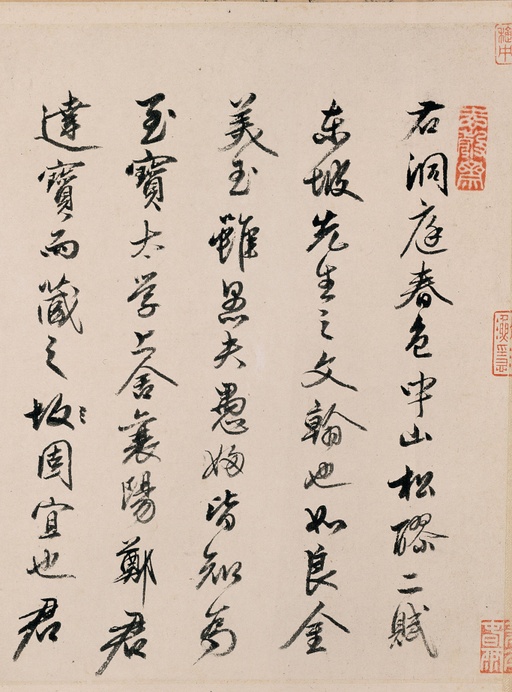 右洞庭春色中山松醪二賦
東坡先生之文翰也如良金
美玉雖愚夫愚婦皆知為
至寶太学上舍襄陽鄭君
達寶而藏之坡固宜也君